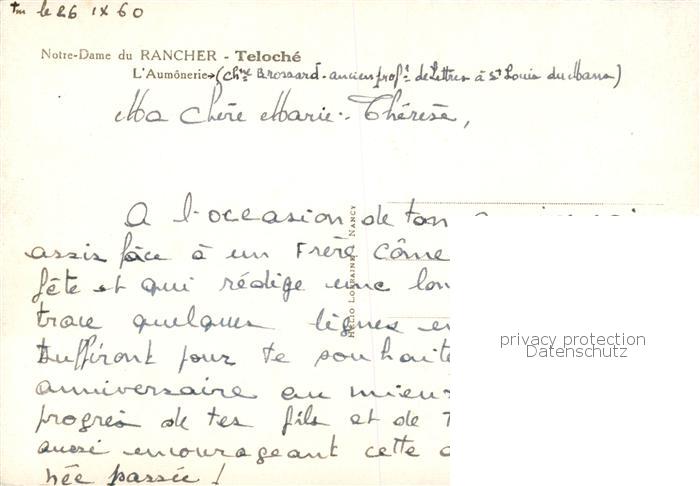 le 26 IX 60
Notre-Dame du RANCHER - Teloché
L'Aumônerie → (Chne Brossard - ancien profr de Lettres à St Louis du Mans)
Ma Chère Marie-Thérèse,
A l'occasion de ton
assis face à un Frère Côme
fête et qui rédige une lon
trace quelques lignes
suffiront pour te souhaite
anniversaire au mieux
progrès de tes fils et de
aussi encourageant cette
née passée !
HÉLIO LORRAINE NANCY
privacy protection
Datenschutz